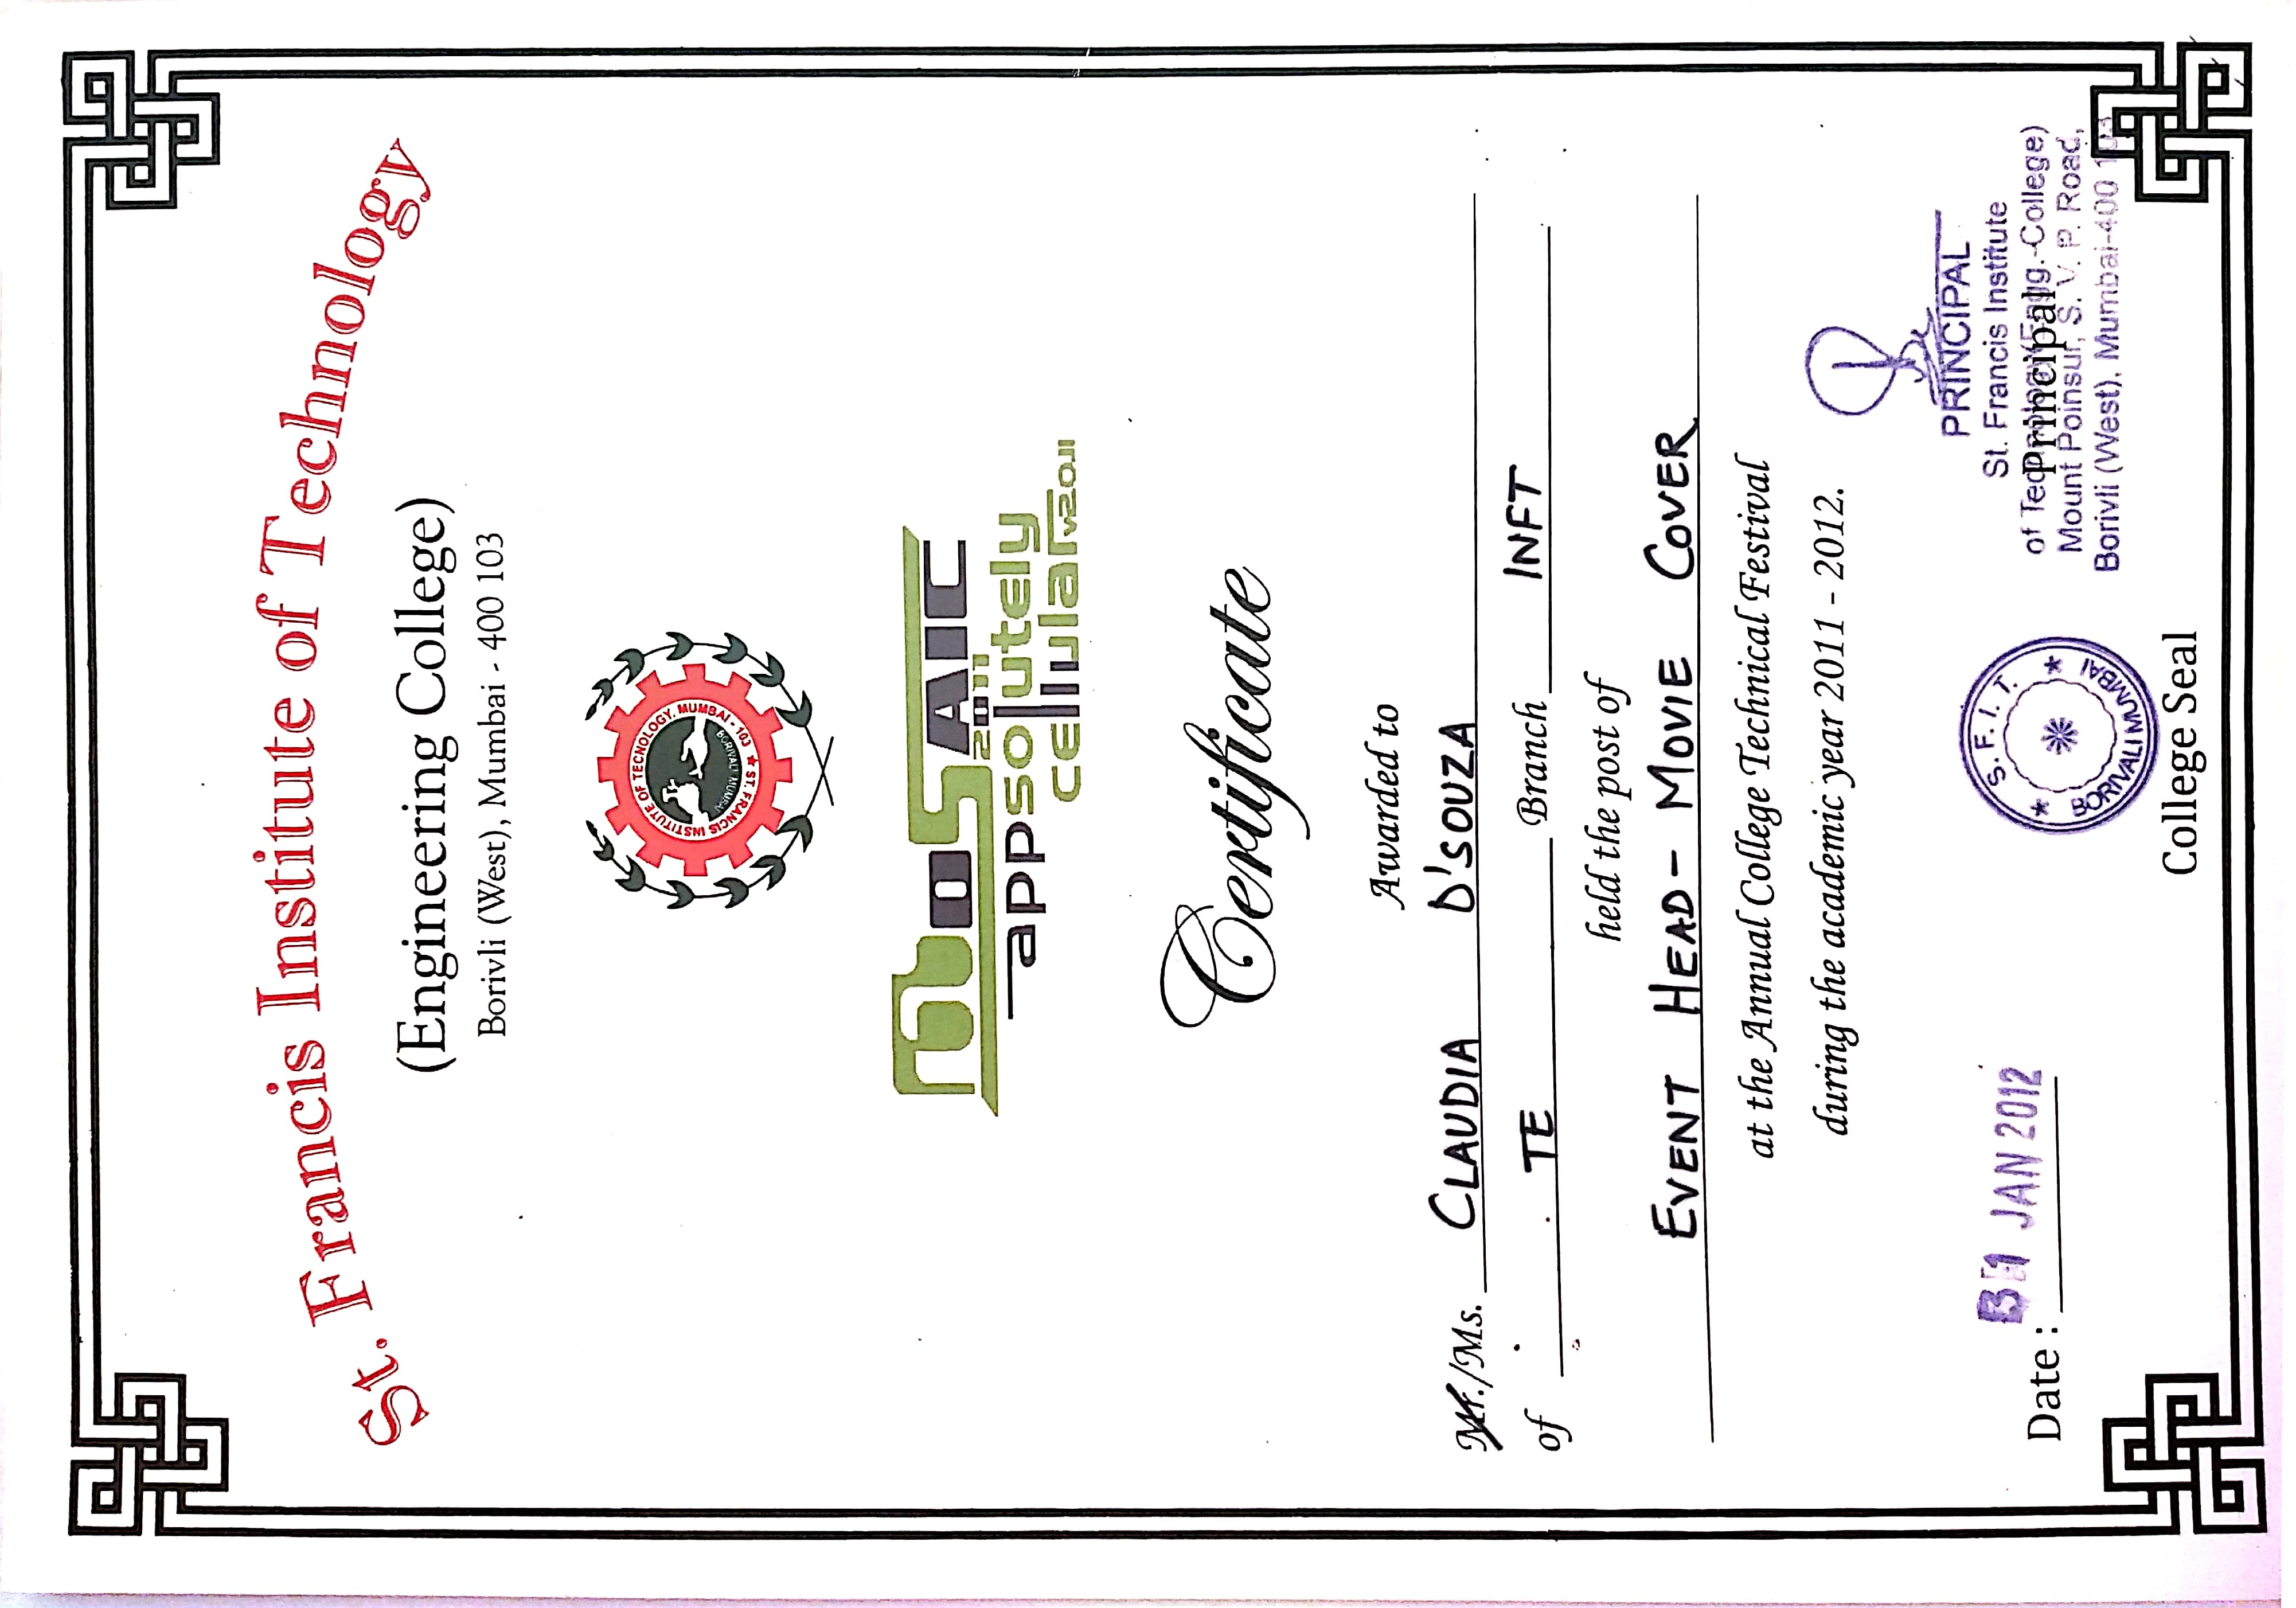 St. Francis Institute of Technology
(Engineering College)
Borivli (West), Mumbai - 400 103
ST. FRANCIS INSTITUTE OF TECNOLOGY, MUMBAI - 103
BORIVALI MUMBAI
MOSAIC
2011
appsolutely
cellular v2.0.11
Certificate
Awarded to
Mr./Ms. CLAUDIA D'SOUZA
of TE Branch INFT
held the post of
EVENT HEAD - MOVIE COVER
at the Annual College Technical Festival
during the academic year 2011 - 2012.
PRINCIPAL
St. Francis Institute
of Technology (Engg. College)
Mount Poinsur, S. V. P. Road,
Borivli (West), Mumbai-400 103
Principal
S. F. I. T.
BORIVALI MUMBAI
College Seal
31 JAN 2012
Date :